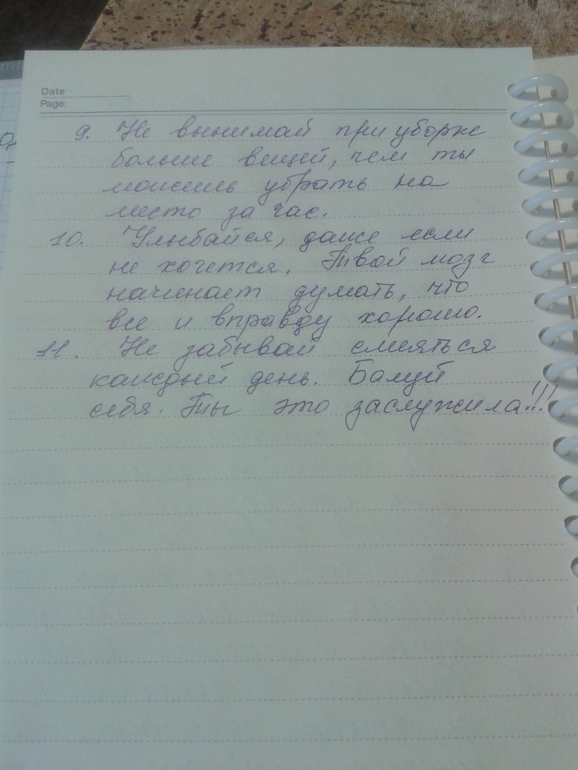 Date:
Page:
9. Не вынимай при уборке
больше вещей, чем ты
можешь убрать на
место за час.
10. Улыбайся, даже если
не хочется. Твой мозг
начинает думать, что
все и вправду хорошо.
11. Не забывай смеяться
каждый день. Балуй
себя. Ты это заслужила!!!